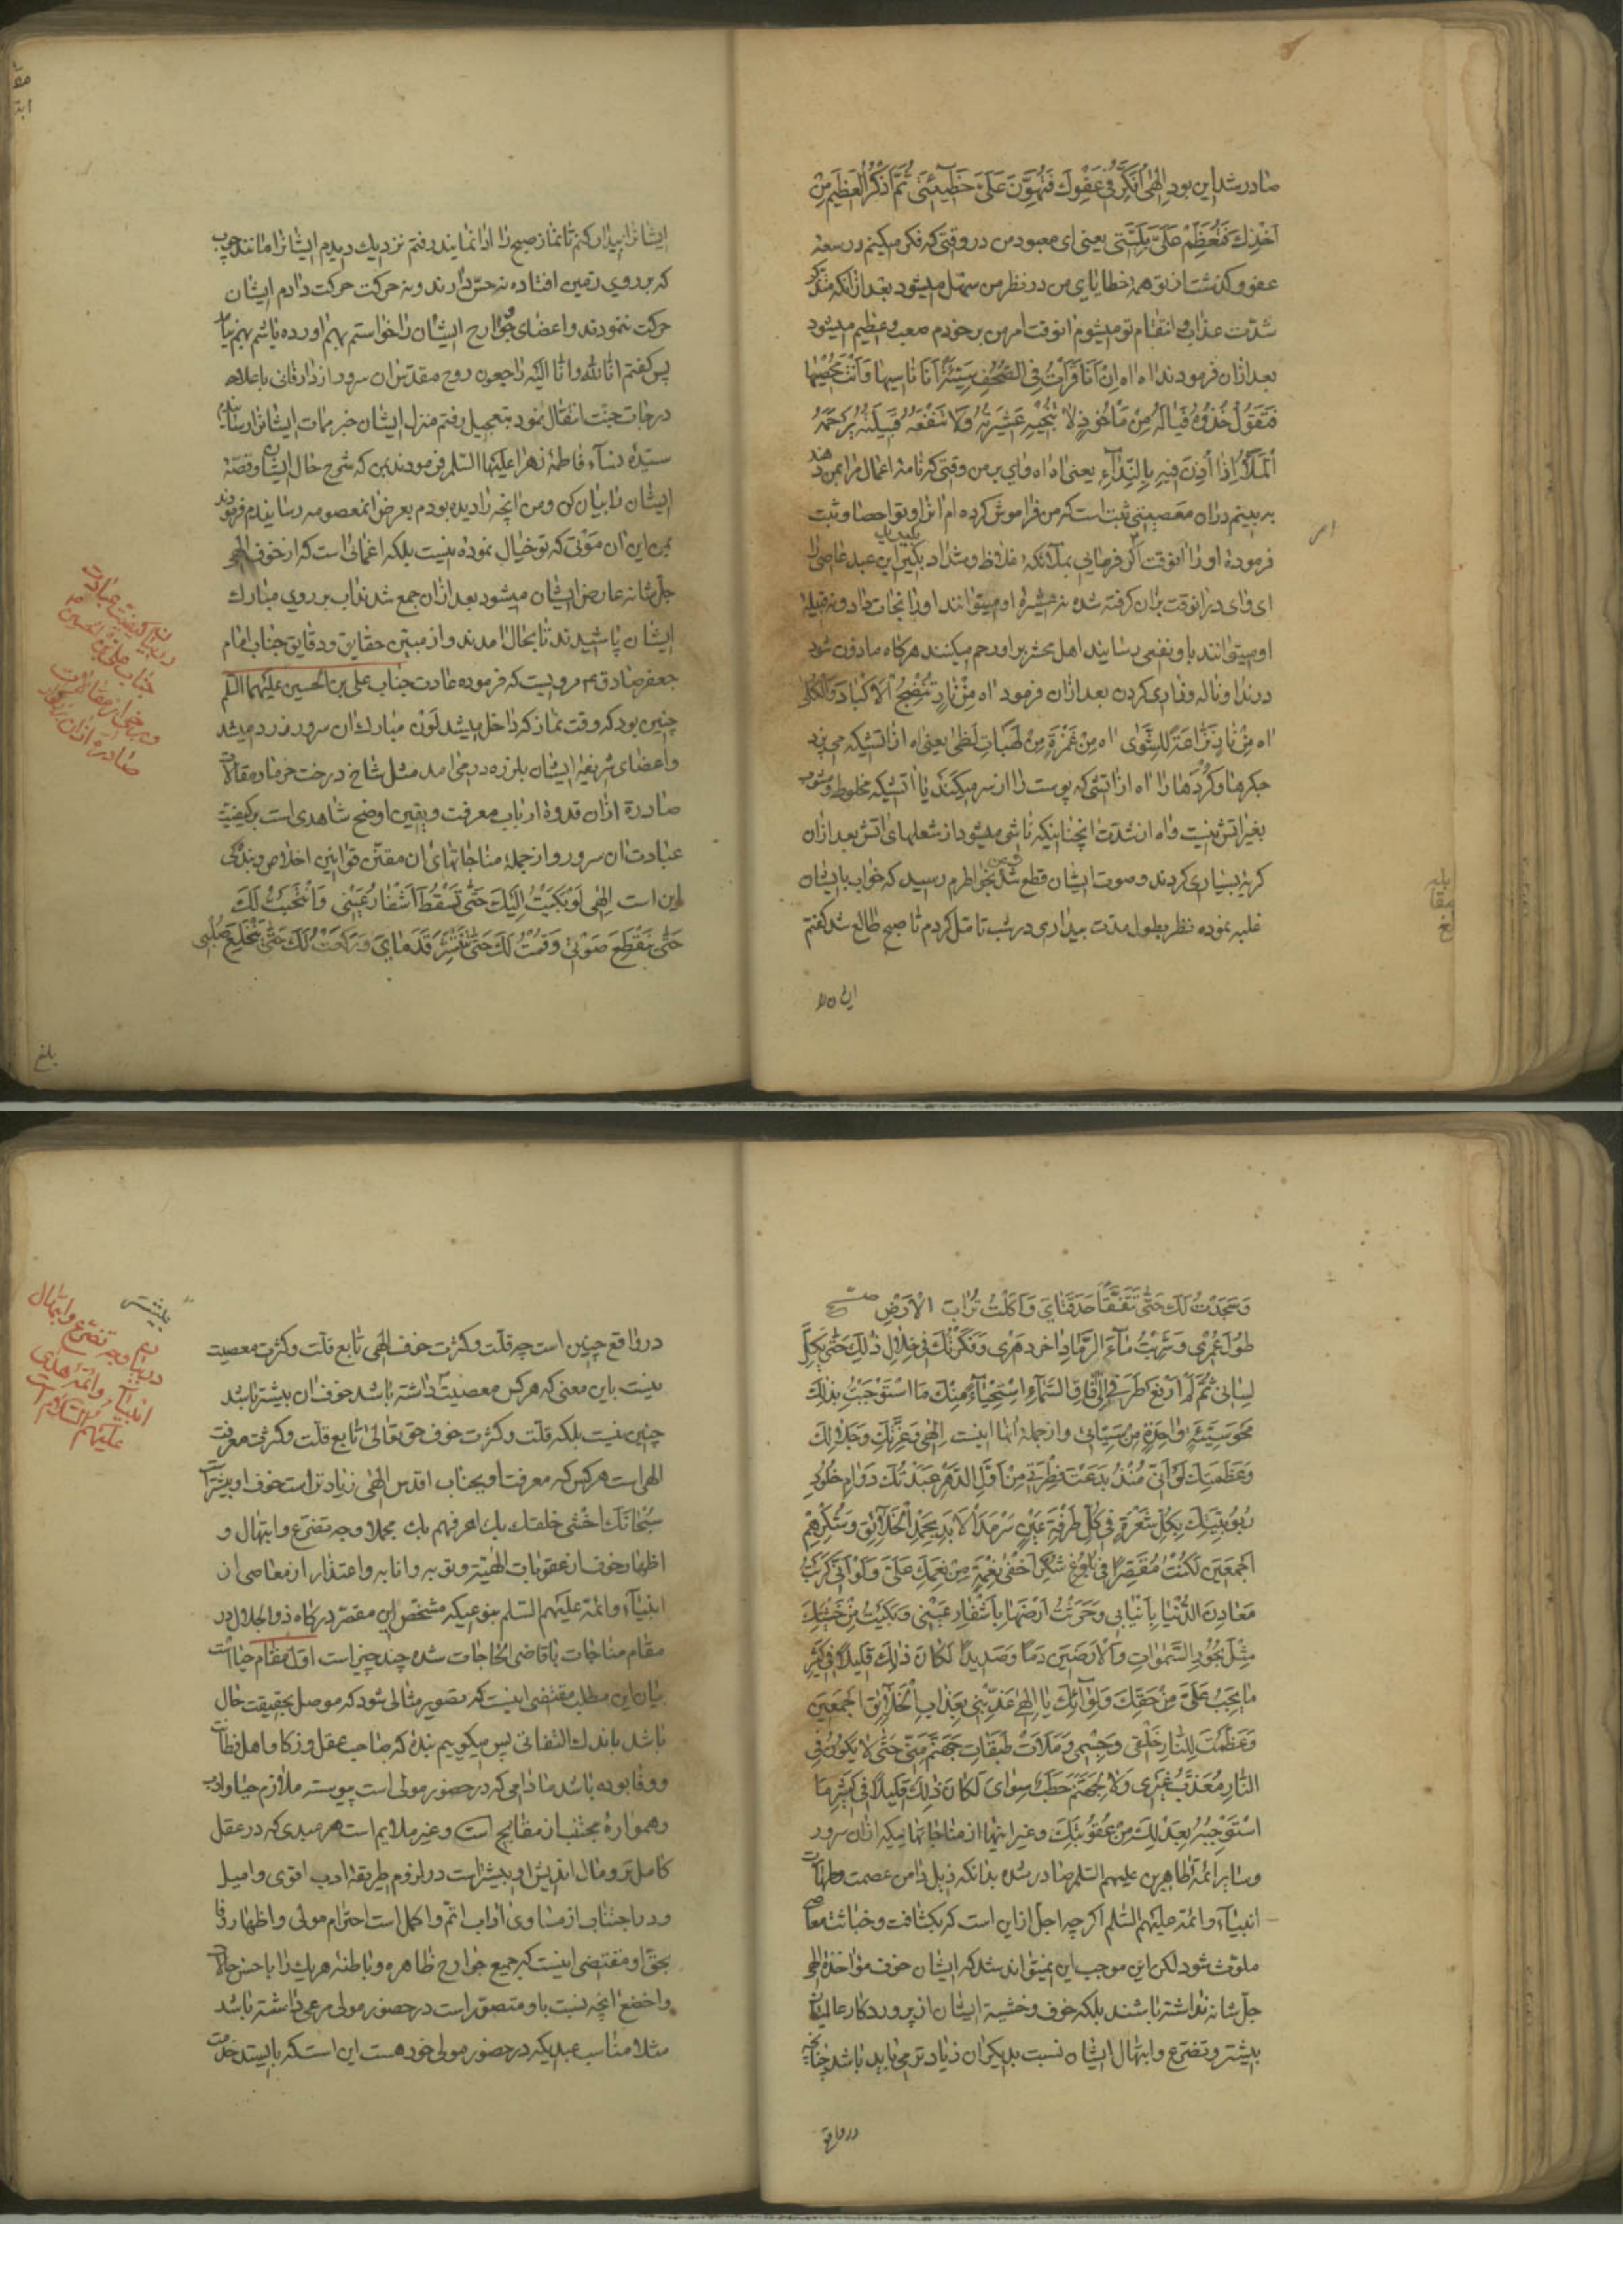 صادر شد این بود الهی اُفَکِّرُ فی عَفْوِكَ فَتَهُونُ عَلَیَّ خَطیئَتی ثُمَّ اَذْکُرُ الْعَظیمَ مِنْ
اَخْذِكَ فَتَعْظُمُ عَلَیَّ بَلِیَّتی یعنی ای معبود من در وقتی که فکر میکنم در سعه
عفو و گذشت از تو همهٔ خطایای من در نظر من سهل میشود بعد از آنکه متذکر
شدّت عذاب و انتقام تو میشوم انوقت امر من بر خودم صعب و عظیم میشود
بعد از آن فرمودند اه اه اِنْ اَنَا قَرَاْتُ فِی الصُّحُفِ سَیِّئَةً اَنَا ناسیها وَ اَنْتَ مُحْصیها
فَتَقُولُ خُذُوهُ فَیا لَهُ مِنْ مَاْخُوذٍ لا تُنْجیهِ عَشیرَتُهُ وَلا تَنْفَعُهُ قَبیلَتُهُ یَرْحَمُهُ
الْمَلَأُ اِذا اُذِنَ فیهِ بِالنِّداءِ یعنی اه اه وای بر من وقتی که نامهٔ اعمال مرا بمن دهند
به بینم در آن معصیتی ثبت است که من فراموش کرده ام انرا و تو احصا و ثبت
فرمودهٔ او را انوقت اگر فرمایی بملائکهٔ غلاظ و شداد بگیرید این عبد عاصی را
ای وای در انوقت بر آن گرفته شده نه عشیرهٔ او میتوانند او را نجات داد و نه قبیلهٔ
او میتوانند باو نفعی رسانید اهل محشر بر او رحم میکنند هرگاه ماذون شود
در ندا و ناله و فریاد کردن بعد از آن فرمود اه مِنْ نارٍ تُنْضِجُ الْاَکْبادَ وَالْکُلی
اه مِنْ نارٍ نَزّاعَةٍ لِلشَّوی اه مِنْ غَمْرَةٍ مِنْ لَهَباتِ لَظی یعنی اه از آتشیکه می پزد
جگرها و گُرده‌ها را اه از آتشی که پوست را از سر میکند یا آتشیکه مخلوط و مشوب
بغیر آتش نیست و اه از شدّت آنچنانیکه ناشی میشود از شعلهای آتش بعد از آن
گریهٔ بسیاری کردند و صوت ایشان قطع شد بخاطرم رسید که خواب بایشان
غلبه نموده نظر بطول مدّت بیداری در شب تامّل کردم تا صبح طالع شد گفتم
ایشانرا
ایشانرا بیدار کنم تا نماز صبح را ادا نمایند رفتم نزدیك دیدم ایشانرا مانند چوب
که بر روی زمین افتاده نه حسّ دارند و نه حرکت حرکت دادم ایشان
حرکت ننمودند و اعضای و جوارح ایشان را خواستم بهم آورده باشم بهم نیامد
پس گفتم انّا لله و انّا الیه راجعون روح مقدّس آن سرور از دار فانی باعلاء
درجات جنّت انتقال نمود بتعجیل رفتم منزل ایشان خبر مماتِ ایشانرا رسانیدم
سیّدهٔ نساء فاطمهٔ زهرا علیها السلم فرمودند بمن که شرح حال ایشان و قصّهٔ
ایشان را بیان کن و من آنچه را دیده بودم بعرض آنمعصومه رسانیدم فرمودند
بمن این آن موتی که تو خیال نموده نیست بلکه اغمائی است که از خوف الهی
جلّ شانه عارض ایشان میشود بعد از آن جمع شدند آب بر روی مبارك
ایشان پاشیدند تا بحال آمدند و از مبیّن حقایق و دقایق جناب امام
جعفر صادق ع مرویست که فرموده عادت جناب علی بن الحسین علیهما السلم
چنین بود که وقت نماز که داخل میشد لون مبارك آن سرور زرد میشد
و اعضای شریفهٔ ایشان بلرزه در می آمد مثل شاخ درخت خرما و مقالات
صادرهٔ از آن قدوهٔ ارباب معرفت و یقین اوضح شاهدی است بر کیفیت
عبادت آن سرور و از جملهٔ مناجاتهای آن مقنّن قوانین اخلاص و بندگی
این است اِلهی لَوْ بَکَیْتُ اِلَیْكَ حَتّی تَسْقُطَ اَشْفارُ عَیْنی وَ انْتَحَبْتُ لَكَ
حَتّی یَنْقَطِعَ صَوْتی وَ قُمْتُ لَكَ حَتّی تَنْتَشِرَ قَدَمایَ وَ رَکَعْتُ لَكَ حَتّی یَنْخَلِعَ صُلْبی
بلغ
وَ سَجَدْتُ لَكَ حَتّی تَتَفَقَّأَ حَدَقَتایَ وَ اَکَلْتُ تُرابَ الْاَرْضِ
طُولَ عُمْری وَ شَرِبْتُ ماءَ الرَّمادِ اخِرَ دَهْری وَ ذَکَرْتُكَ فی خِلالِ ذلِكَ حَتّی یَکِلَّ
لِسانی ثُمَّ لَمْ اَرْفَعْ طَرْفی اِلی افاقِ السَّماءِ اِسْتِحْیاءً مِنْكَ مَا اسْتَوْجَبْتُ بِذلِكَ
مَحْوَ سَیِّئَةٍ واحِدَةٍ مِنْ سَیِّئاتی و از جملهٔ انها اینست اِلهی وَ عِزَّتِكَ وَ جَلالِكَ
وَ عَظَمَتِكَ لَوْ اَنّی مُنْذُ بَدَعْتَ فِطْرَتی مِنْ اَوَّلِ الدَّهْرِ عَبَدْتُكَ دَوامَ خُلُودِ
رُبُوبِیَّتِكَ بِکُلِّ شَعْرَةٍ فی کُلِّ طَرْفَةِ عَیْنٍ سَرْمَدَ الْاَبَدِ بِحَمْدِ الْخَلائِقِ وَ شُکْرِهِمْ
اَجْمَعینَ لَکُنْتُ مُقَصِّراً فی بُلُوغِ شُکْرِ اَخْفی نِعْمَةٍ مِنْ نِعَمِكَ عَلَیَّ وَلَوْ اَنّی کَرَبْتُ
مَعادِنَ الدُّنْیا بِاَنْیابی وَ حَرَثْتُ اَرْضَها بِاَشْفارِ عَیْنی وَ بَکَیْتُ مِنْ خَشْیَتِكَ
مِثْلَ بُحُورِ السَّمواتِ وَ الْاَرَضینَ دَماً وَ صَدیداً لَکانَ ذلِكَ قَلیلاً فی کَثیرِ
ما یَجِبُ عَلَیَّ مِنْ حَقِّكَ وَلَوْ اَنَّكَ یا اِلهی عَذَّبْتَنی بِعَذابِ الْخَلائِقِ اَجْمَعینَ
وَ عَظَّمْتَ لِلنّارِ خَلْقی وَ جِسْمی وَ مَلَأْتَ طَبَقاتِ جَهَنَّمَ مِنّی حَتّی لا یَکُونَ فِی
النّارِ مُعَذَّبٌ غَیْری وَلا لِجَهَنَّمَ حَطَبٌ سِوایَ لَکانَ ذلِكَ قَلیلاً فی کَثیرِ مَا
اسْتَوْجِبُهُ بِعَدْلِكَ مِنْ عُقُوبَتِكَ و غیر اینها از مناجاتهاییکه از آن سرور
و سایر ائمّهٔ طاهرین علیهم السلم صادر شده بدانکه ذیل دامن عصمت و طهارت
انبیاء و ائمّه علیهم السّلم اگر چه اجلّ از این است که بکثافت و خباثت معاصی
ملوّث شود لکن این موجب این نمیتواند شد که ایشان خوف مؤاخذهٔ الهی
جلّ شانه نداشته باشند بلکه خوف و خشیه ایشان از پروردگار عالمیان
بیشتر و تضرّع و ابتهال ایشان نسبت بدیگران زیادتر می باید باشد چنانچه
در واقع
در واقع چنین است چه قلّت و کثرت خوف الهی تابع قلّت و کثرت معصیت
نیست باین معنی که هر کس معصیت داشته باشد خوف آن بیشتر باشد
چنین نیست بلکه قلّت و کثرت خوف حق تعالی تابع قلّت و کثرت معرفت
الهی است هر کس که معرفت او بجناب اقدس الهی زیادتر است خوف او بیشتر است
سُبْحانَكَ اَخْشی خلقك بك اعرفهم بك مجملا وجه تضرّع و ابتهال و
اظهار خوف از عقوبات الهیّه و توبه و انابه و اعتذار از معاصی از
انبیاء و ائمّه علیهم السّلم بنوعیکه مشخّص این مقصّر درگاه ذو الجلال در
مقام مناجات با قاضی الحاجات شده چند چیز است اوّل مقام حیا است
بیان این مطلب مقتضی اینست که تصویر مثالی شود که موصل بحقیقت حال
باشد باندك التفاتی پس میگوییم بندهٔ که صاحب عقل و زکا و اهل فطانت
و وفا بوده باشد مادامی که در حضور مولی است پیوسته ملازم حیا و ادب
و همواره مجتنب از مقابح است و غیر ملایم است هر عبدی که در عقل
کامل تر و مآل اندیش او بیشتر است در لزوم طریقهٔ ادب اقوی و امیل
و در اجتناب از مساوی آداب اتمّ و اکمل است احترام مولی و اظهار وفا
بحقّ او مقتضی اینست که جمیع جوارح ظاهره و باطنه هر یك را باحسن حالات
و اخضع آنچه نسبت باو متصوّر است در حضور مولی مرعی داشته باشد
مثلا مناسب عبدیکه در حضور مولی خود هست این است که بایستد خدمت
در بیان وجه تضرّع و ابتهال
انبیاء و ائمّه هدی
علیهم السّلام است